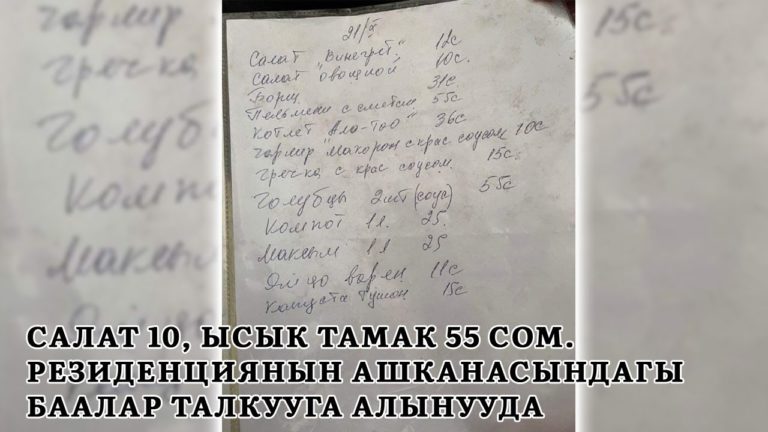 21/X
Салат "Винегрет" 12с
Салат "Овощной" 10с.
Борщ 31с
Пельмени с сметан 55с
Котлет "Ала-Тоо" 36с
Гарнир "Макорон с крас соусом 10с
Гречка с крас соусом. 15с.
Голубцы 2шт (соус) 55с
Компот 1л. 25.
Максым 1л 25
Яйцо варен 11с
Капуста Тушон 15с
гарнир 15с
гречка
Голуб 55с
Компо
Максы
САЛАТ 10, ЫСЫК ТАМАК 55 СОМ.
РЕЗИДЕНЦИЯНЫН АШКАНАСЫНДАГЫ
БААЛАР ТАЛКУУГА АЛЫНУУДА